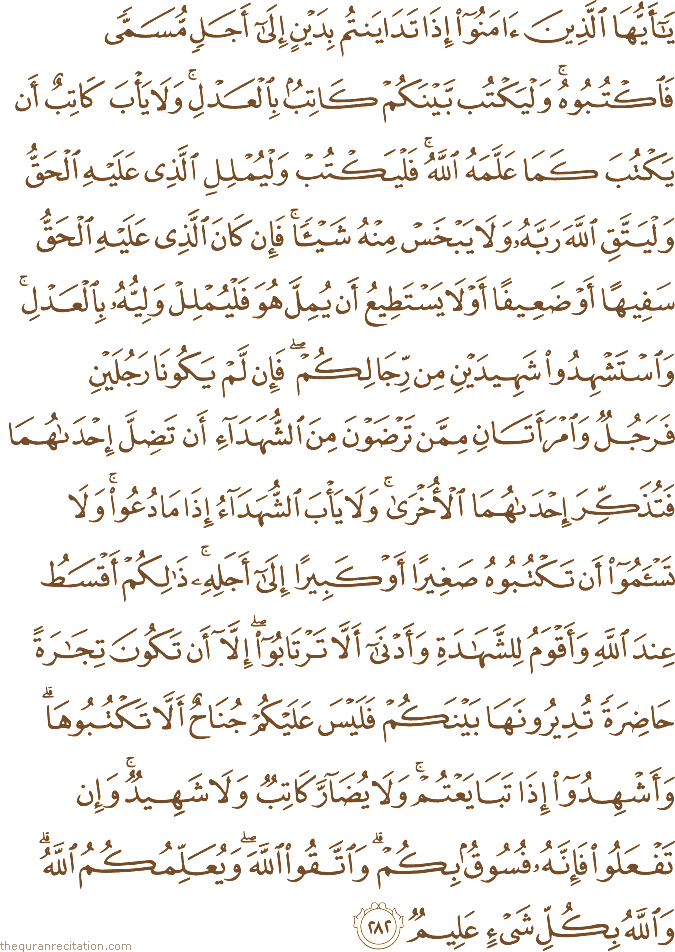 يَـٰٓأَيُّهَا ٱلَّذِينَ ءَامَنُوٓا۟ إِذَا تَدَايَنتُم بِدَيْنٍ إِلَىٰٓ أَجَلٍ مُّسَمًّى
فَٱكْتُبُوهُ ۚ وَلْيَكْتُب بَّيْنَكُمْ كَاتِبٌۢ بِٱلْعَدْلِ ۚ وَلَا يَأْبَ كَاتِبٌ أَن
يَكْتُبَ كَمَا عَلَّمَهُ ٱللَّهُ ۚ فَلْيَكْتُبْ وَلْيُمْلِلِ ٱلَّذِى عَلَيْهِ ٱلْحَقُّ
وَلْيَتَّقِ ٱللَّهَ رَبَّهُۥ وَلَا يَبْخَسْ مِنْهُ شَيْـًٔا ۚ فَإِن كَانَ ٱلَّذِى عَلَيْهِ ٱلْحَقُّ
سَفِيهًا أَوْ ضَعِيفًا أَوْ لَا يَسْتَطِيعُ أَن يُمِلَّ هُوَ فَلْيُمْلِلْ وَلِيُّهُۥ بِٱلْعَدْلِ ۚ
وَٱسْتَشْهِدُوا۟ شَهِيدَيْنِ مِن رِّجَالِكُمْ ۖ فَإِن لَّمْ يَكُونَا رَجُلَيْنِ
فَرَجُلٌ وَٱمْرَأَتَانِ مِمَّن تَرْضَوْنَ مِنَ ٱلشُّهَدَآءِ أَن تَضِلَّ إِحْدَىٰهُمَا
فَتُذَكِّرَ إِحْدَىٰهُمَا ٱلْأُخْرَىٰ ۚ وَلَا يَأْبَ ٱلشُّهَدَآءُ إِذَا مَا دُعُوا۟ ۚ وَلَا
تَسْـَٔمُوٓا۟ أَن تَكْتُبُوهُ صَغِيرًا أَوْ كَبِيرًا إِلَىٰٓ أَجَلِهِۦ ۚ ذَٰلِكُمْ أَقْسَطُ
عِندَ ٱللَّهِ وَأَقْوَمُ لِلشَّهَـٰدَةِ وَأَدْنَىٰٓ أَلَّا تَرْتَابُوٓا۟ ۖ إِلَّآ أَن تَكُونَ تِجَـٰرَةً
حَاضِرَةً تُدِيرُونَهَا بَيْنَكُمْ فَلَيْسَ عَلَيْكُمْ جُنَاحٌ أَلَّا تَكْتُبُوهَا ۗ
وَأَشْهِدُوٓا۟ إِذَا تَبَايَعْتُمْ ۚ وَلَا يُضَآرَّ كَاتِبٌ وَلَا شَهِيدٌ ۚ وَإِن
تَفْعَلُوا۟ فَإِنَّهُۥ فُسُوقٌۢ بِكُمْ ۗ وَٱتَّقُوا۟ ٱللَّهَ ۖ وَيُعَلِّمُكُمُ ٱللَّهُ ۗ
وَٱللَّهُ بِكُلِّ شَىْءٍ عَلِيمٌ ٢٨٢
thequranrecitation.com